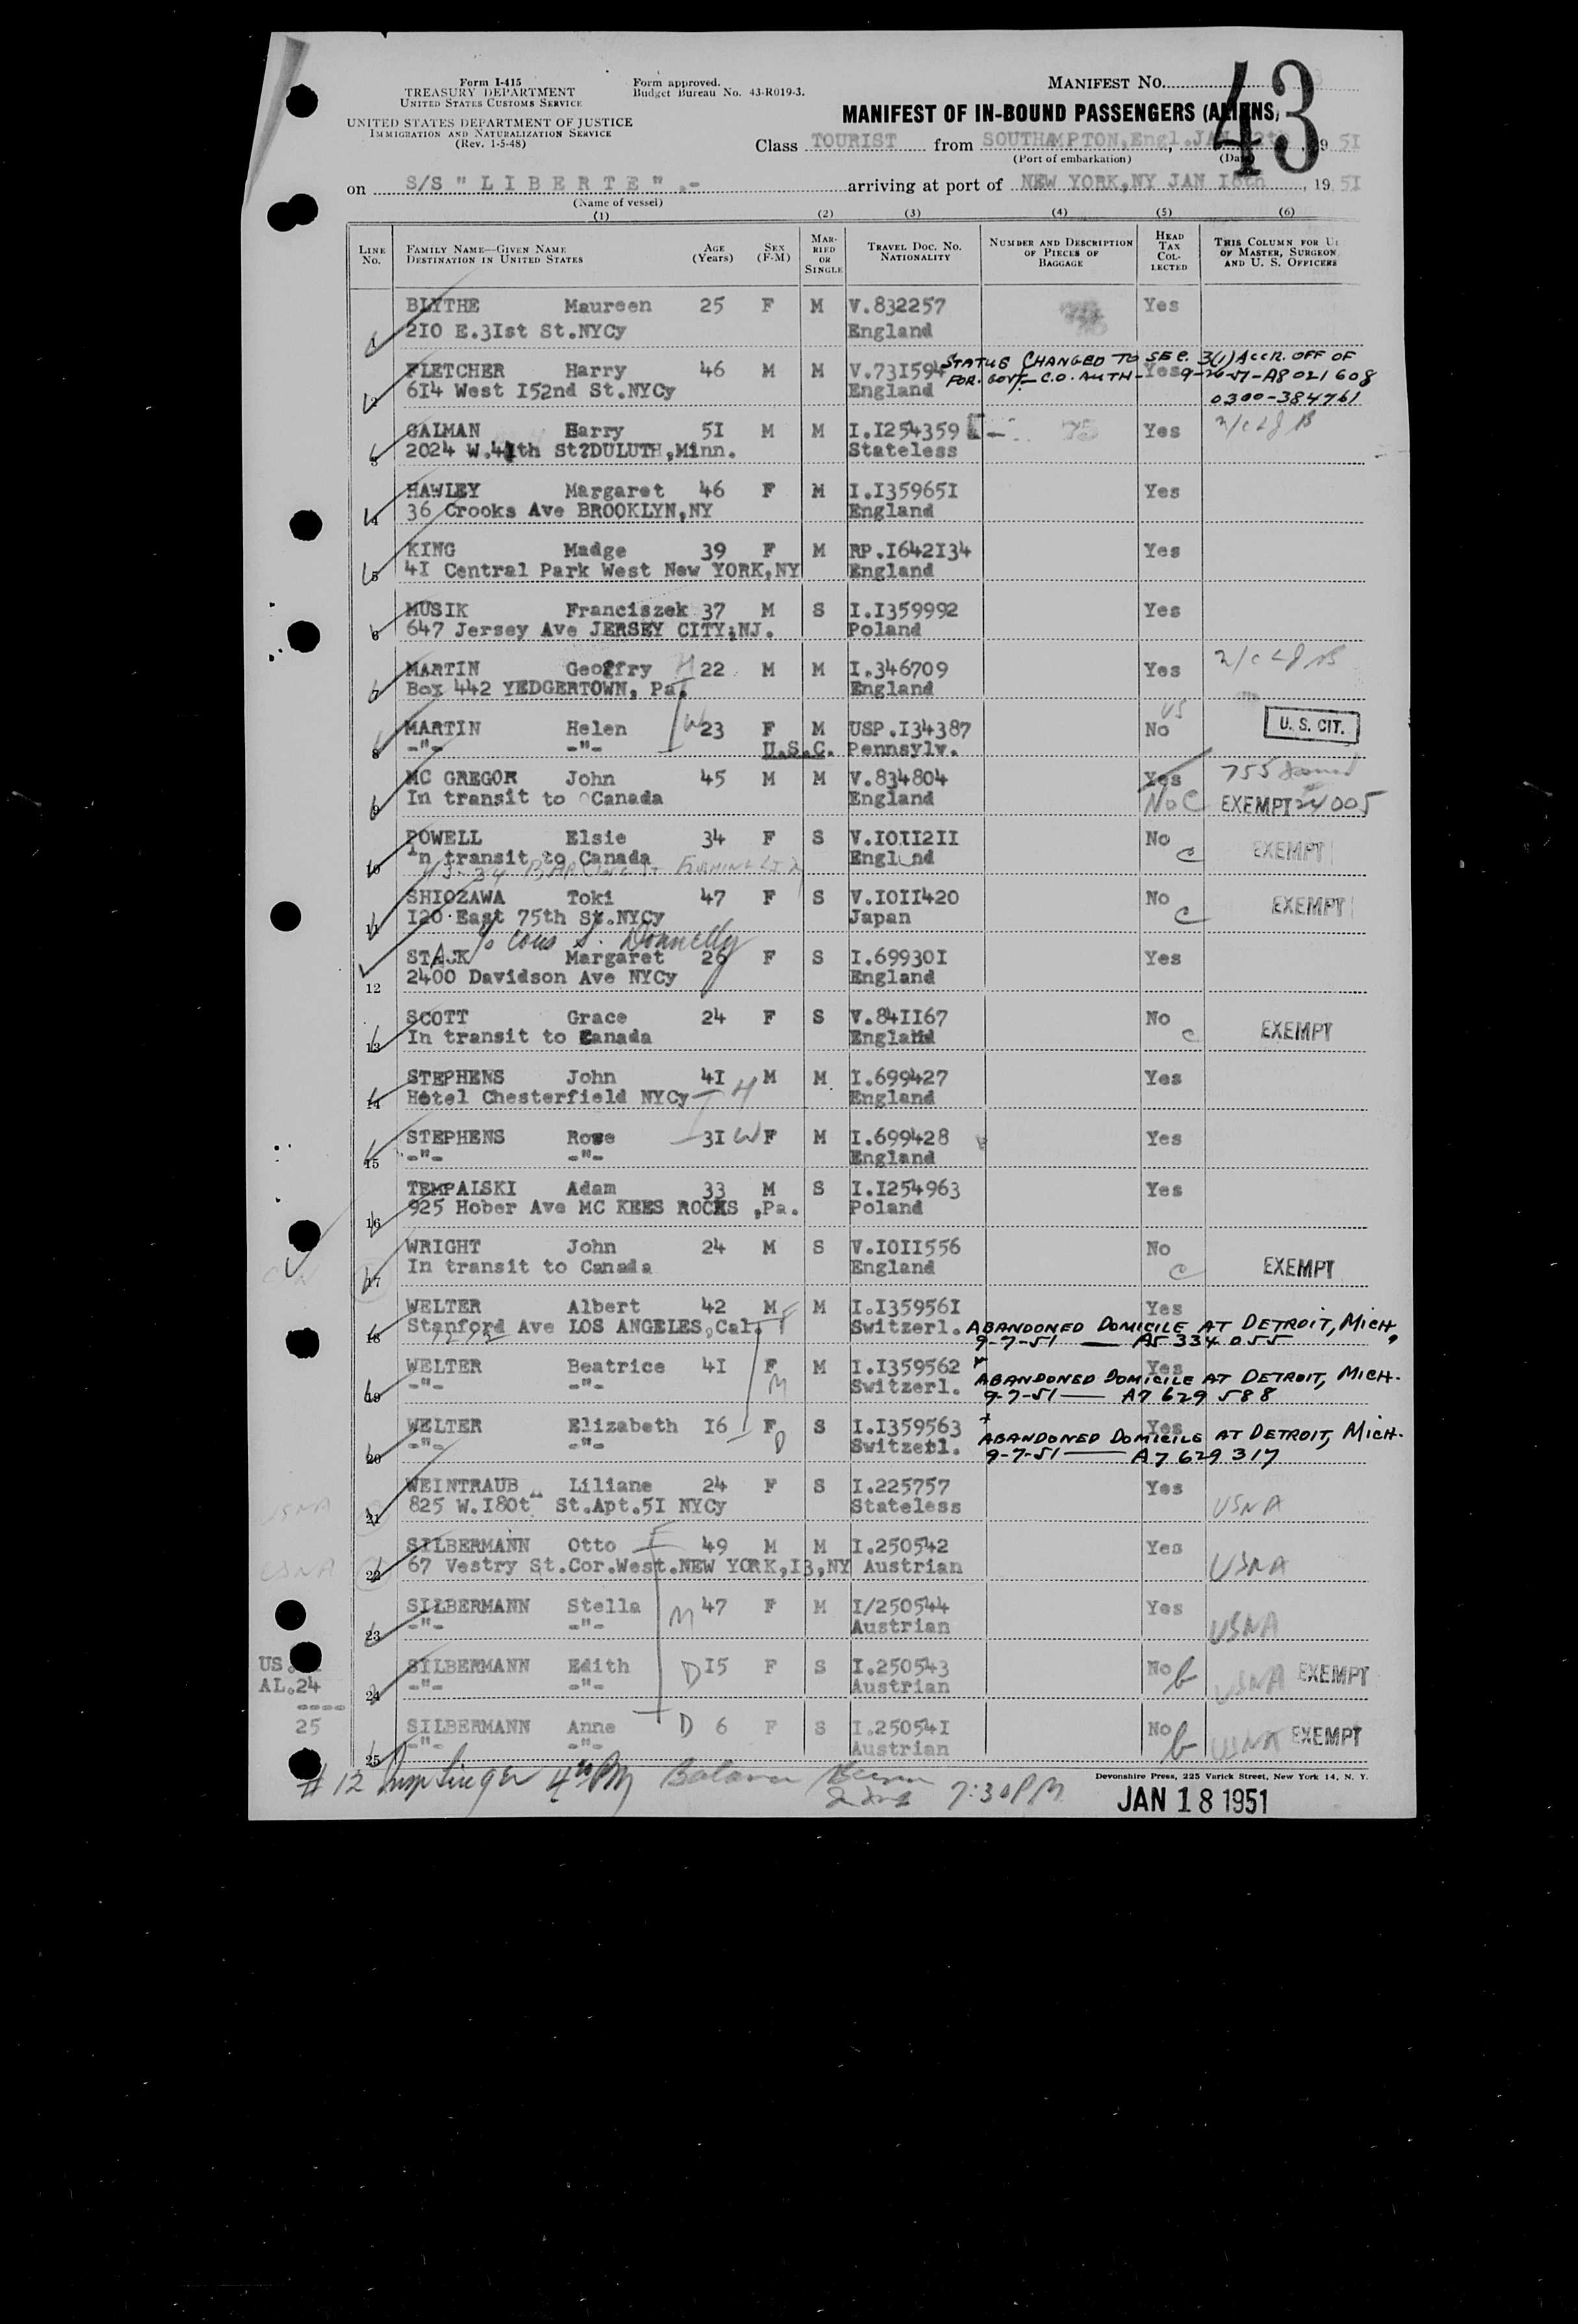 Form I-415
TREASURY DEPARTMENT
UNITED STATES CUSTOMS SERVICE
UNITED STATES DEPARTMENT OF JUSTICE
IMMIGRATION AND NATURALIZATION SERVICE
(Rev. 1-5-48)
Form approved.
Budget Bureau No. 43-R019-3.
MANIFEST No. 43
MANIFEST OF IN-BOUND PASSENGERS (ALIENS)
Class TOURIST from SOUTHAMPTON,Engl. JAN , 1951
(Port of embarkation) (Date)
on S/S " L I B E R T E " .- arriving at port of NEW YORK,NY JAN 18th, 1951
(Name of vessel)
(1) (2) (3) (4) (5) (6)
LINE No. FAMILY NAME—GIVEN NAME DESTINATION IN UNITED STATES AGE (Years) SEX (F-M) MARRIED OR SINGLE TRAVEL DOC. No. NATIONALITY NUMBER AND DESCRIPTION OF PIECES OF BAGGAGE HEAD TAX COLLECTED THIS COLUMN FOR U OF MASTER, SURGEON AND U. S. OFFICERS
BLYTHE Maureen 25 F M V.832257 Yes
1 210 E.3Ist St.NYCy England
FLETCHER Harry 46 M M V.73I594 Yes STATUS CHANGED TO SEC. 3(1) ACCR. OFF OF
FOR. GOVT.— C.O. AUTH- 9-26-51-A8021608
2 6I4 West I52nd St.NYCy England 0300-384761
GALMAN Harry 5I M M I.I254359 Yes
3 2024 W.4th St?DULUTH,Minn. Stateless
HAWLEY Margaret 46 F M I.I35965I Yes
4 36 Crooks Ave BROOKLYN,NY England
KING Madge 39 F M RP.I642I34 Yes
5 4I Central Park West New YORK,NY England
MUSIK Franciszek 37 M S I.I359992 Yes
6 647 Jersey Ave JERSEY CITY,NJ. Poland
MARTIN Geoffry H 22 M M I.346709 Yes
7 Box 442 YEDGERTOWN, Pa. England
MARTIN Helen W 23 F M USP.I34387 No US U. S. CIT.
8 -"- -"- U.S.C. Pennsylv.
MC GREGOR John 45 M M V.834804 Yes 755
9 In transit to Canada England No C EXEMPT 24005
POWELL Elsie 34 F S V.IOII2II No C EXEMPT
10 In transit to Canada England
SHIOZAWA Toki 47 F S V.IOII420 No C EXEMPT
11 I20 East 75th St.NYCy Japan
c/o cous S. Donnelly
STACK Margaret 26 F S I.69930I Yes
12 2400 Davidson Ave NYCy England
SCOTT Grace 24 F S V.84II67 No C EXEMPT
13 In transit to Canada England
STEPHENS John 4I M M I.699427 Yes
14 Hotel Chesterfield NYCy H England
STEPHENS Rose 3I W F M I.699428 Yes
15 -"- -"- England
TEMPALSKI Adam 33 M S I.I254963 Yes
16 925 Hober Ave MC KEES ROCKS ,Pa. Poland
WRIGHT John 24 M S V.IOII556 No C EXEMPT
17 In transit to Canada England
WELTER Albert 42 M F M I.I35956I Yes
18 Stanford Ave LOS ANGELES,Cal. Switzerl. ABANDONED DOMICILE AT DETROIT, MICH,
9-7-51 — A5 334 055
WELTER Beatrice 4I F M I.I359562 Yes
19 -"- -"- M Switzerl. ABANDONED DOMICILE AT DETROIT, MICH.
9-7-51 — A7 629 588
WELTER Elizabeth I6 F S I.I359563 Yes
20 -"- -"- D Switzerl. ABANDONED DOMICILE AT DETROIT, MICH.
9-7-51 — A7 629 317
WEINTRAUB Liliane 24 F S I.225757 Yes
21 825 W.I80t" St.Apt.5I NYCy Stateless USNA
SILBERMANN Otto F 49 M M I.250542 Yes
22 67 Vestry St.Cor.West.NEW YORK,I3,NY Austrian USNA
SILBERMANN Stella M 47 F M I/250544 Yes
23 -"- -"- Austrian USNA
US.
SILBERMANN Edith D I5 F S I.250543 No b USNA EXEMPT
AL.24
24 -"- -"- Austrian
----
25
SILBERMANN Anne D 6 F S I.25054I No b USNA EXEMPT
25 -"- -"- Austrian
# 12 4 PM Balance 7:30 PM
Devonshire Press, 225 Varick Street, New York 14, N. Y.
JAN 18 1951